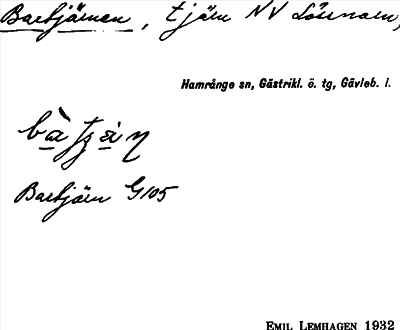 Bartjärnen, tjärn NV Lössnaren,
Hamrånge sn, Gästrikl. ö. tg, Gävleb. l.
Bartjärn G105
EMIL LEMHAGEN 1932